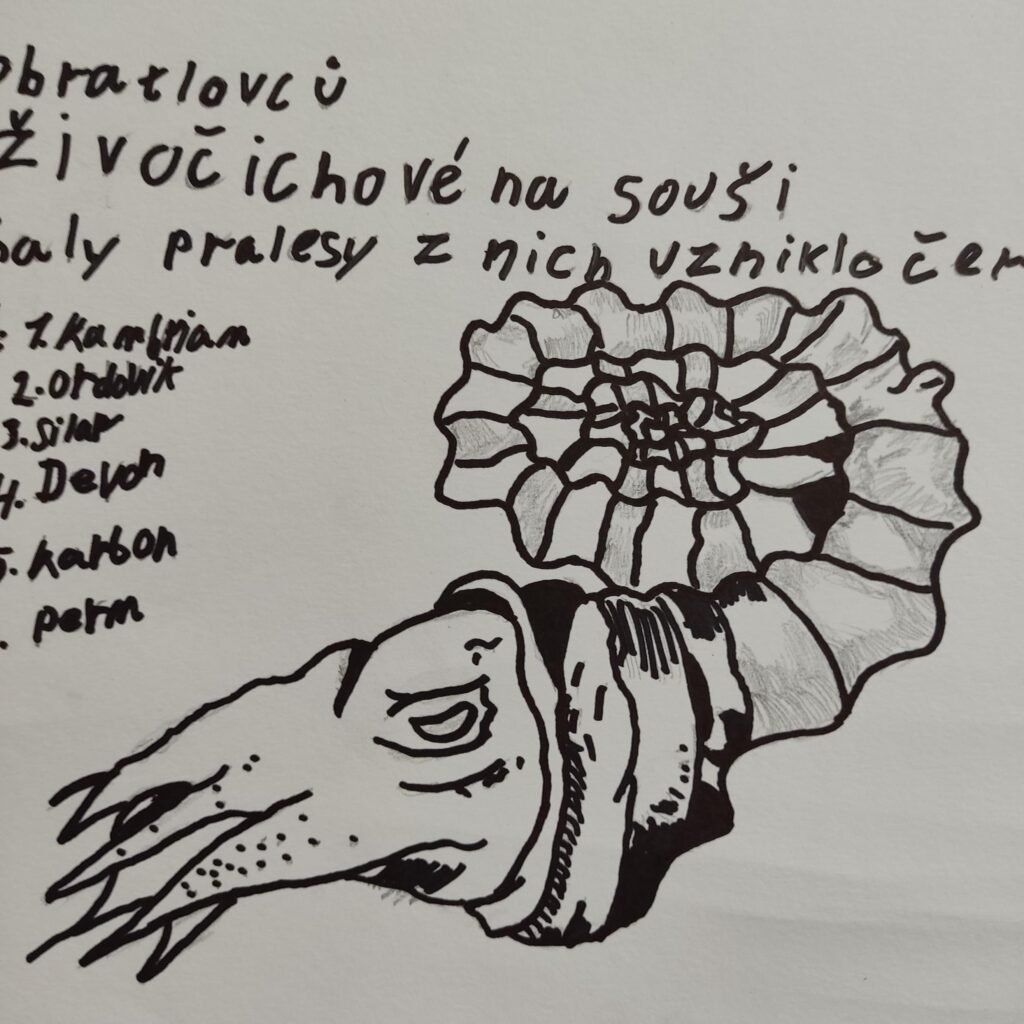 obratlovců
živočichové na souši
aly pralesy z nich vzniklo čer
1. Kambriam
2. Ordovik
3. Silur
4. Devon
5. karbon
. perm